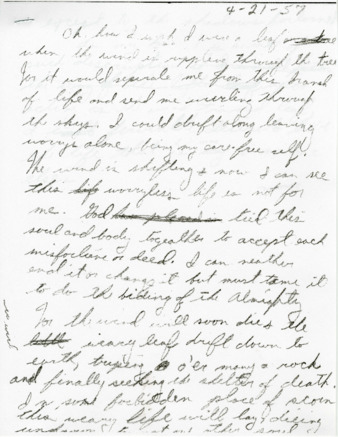 4-21-57
Oh how I wish I was a leaf
when the wind is rippling through the tree
for it would separate me from this branch
of life and send me swirling through
the skys. I could drift along leaving
worrys alone, being my care-free self.
The wind is shifting & now I can see
this worryless life is not for
me. God tied this
soul and body togeather to accept each
misfortune or deed. I can neather
end it or change it but must tame it
to do the bidding of the Almighty
For the wind will soon die & the
weary leaf drift down to
earth, o'er many a rock
and finally seeking the shelter of death.
In some forbidden place of scorn
this weary life will lay, dieing